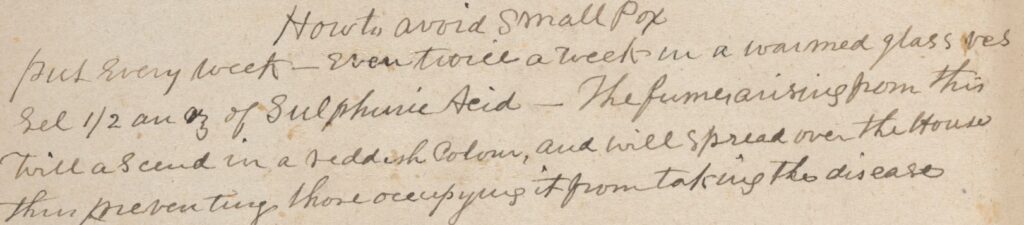 How to avoid Small Pox
put Every week – Even twice a week in a warmed glass ves
sel 1/2 an oz of Sulphuric Acid – The fumes arising from this
will ascend in a reddish Colour, and will spread over the House
thus preventing those occupying it from taking the disease